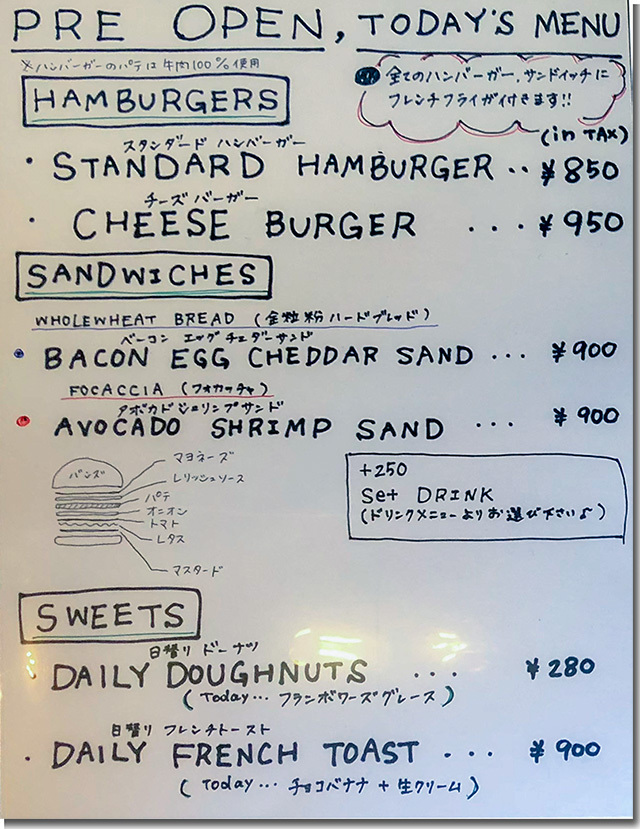 PRE OPEN, TODAY'S MENU
※ハンバーガーのパテは牛肉100%使用
全てのハンバーガー、サンドイッチに
フレンチフライが付きます!!
HAMBURGERS
(in TAX)
スタンダード ハンバーガー
・STANDARD HAMBURGER ‥ ¥850
チーズ バーガー
・CHEESE BURGER ... ¥950
SANDWICHES
WHOLEWHEAT BREAD (全粒粉ハードブレッド)
ベーコン エッグ チェダーサンド
BACON EGG CHEDDAR SAND ... ¥900
FOCACCIA (フォカッチャ)
アボカドシュリンプサンド
AVOCADO SHRIMP SAND ... ¥900
バンズ
マヨネーズ
レリッシュソース
パテ
オニオン
トマト
レタス
マスタード
+250
Set DRINK
(ドリンクメニューよりお選び下さい♪)
SWEETS
日替り ドーナツ
・DAILY DOUGHNUTS ... ¥280
(Today... フランボワーズグレース)
日替り フレンチトースト
・DAILY FRENCH TOAST ... ¥900
(Today... チョコバナナ+生クリーム)